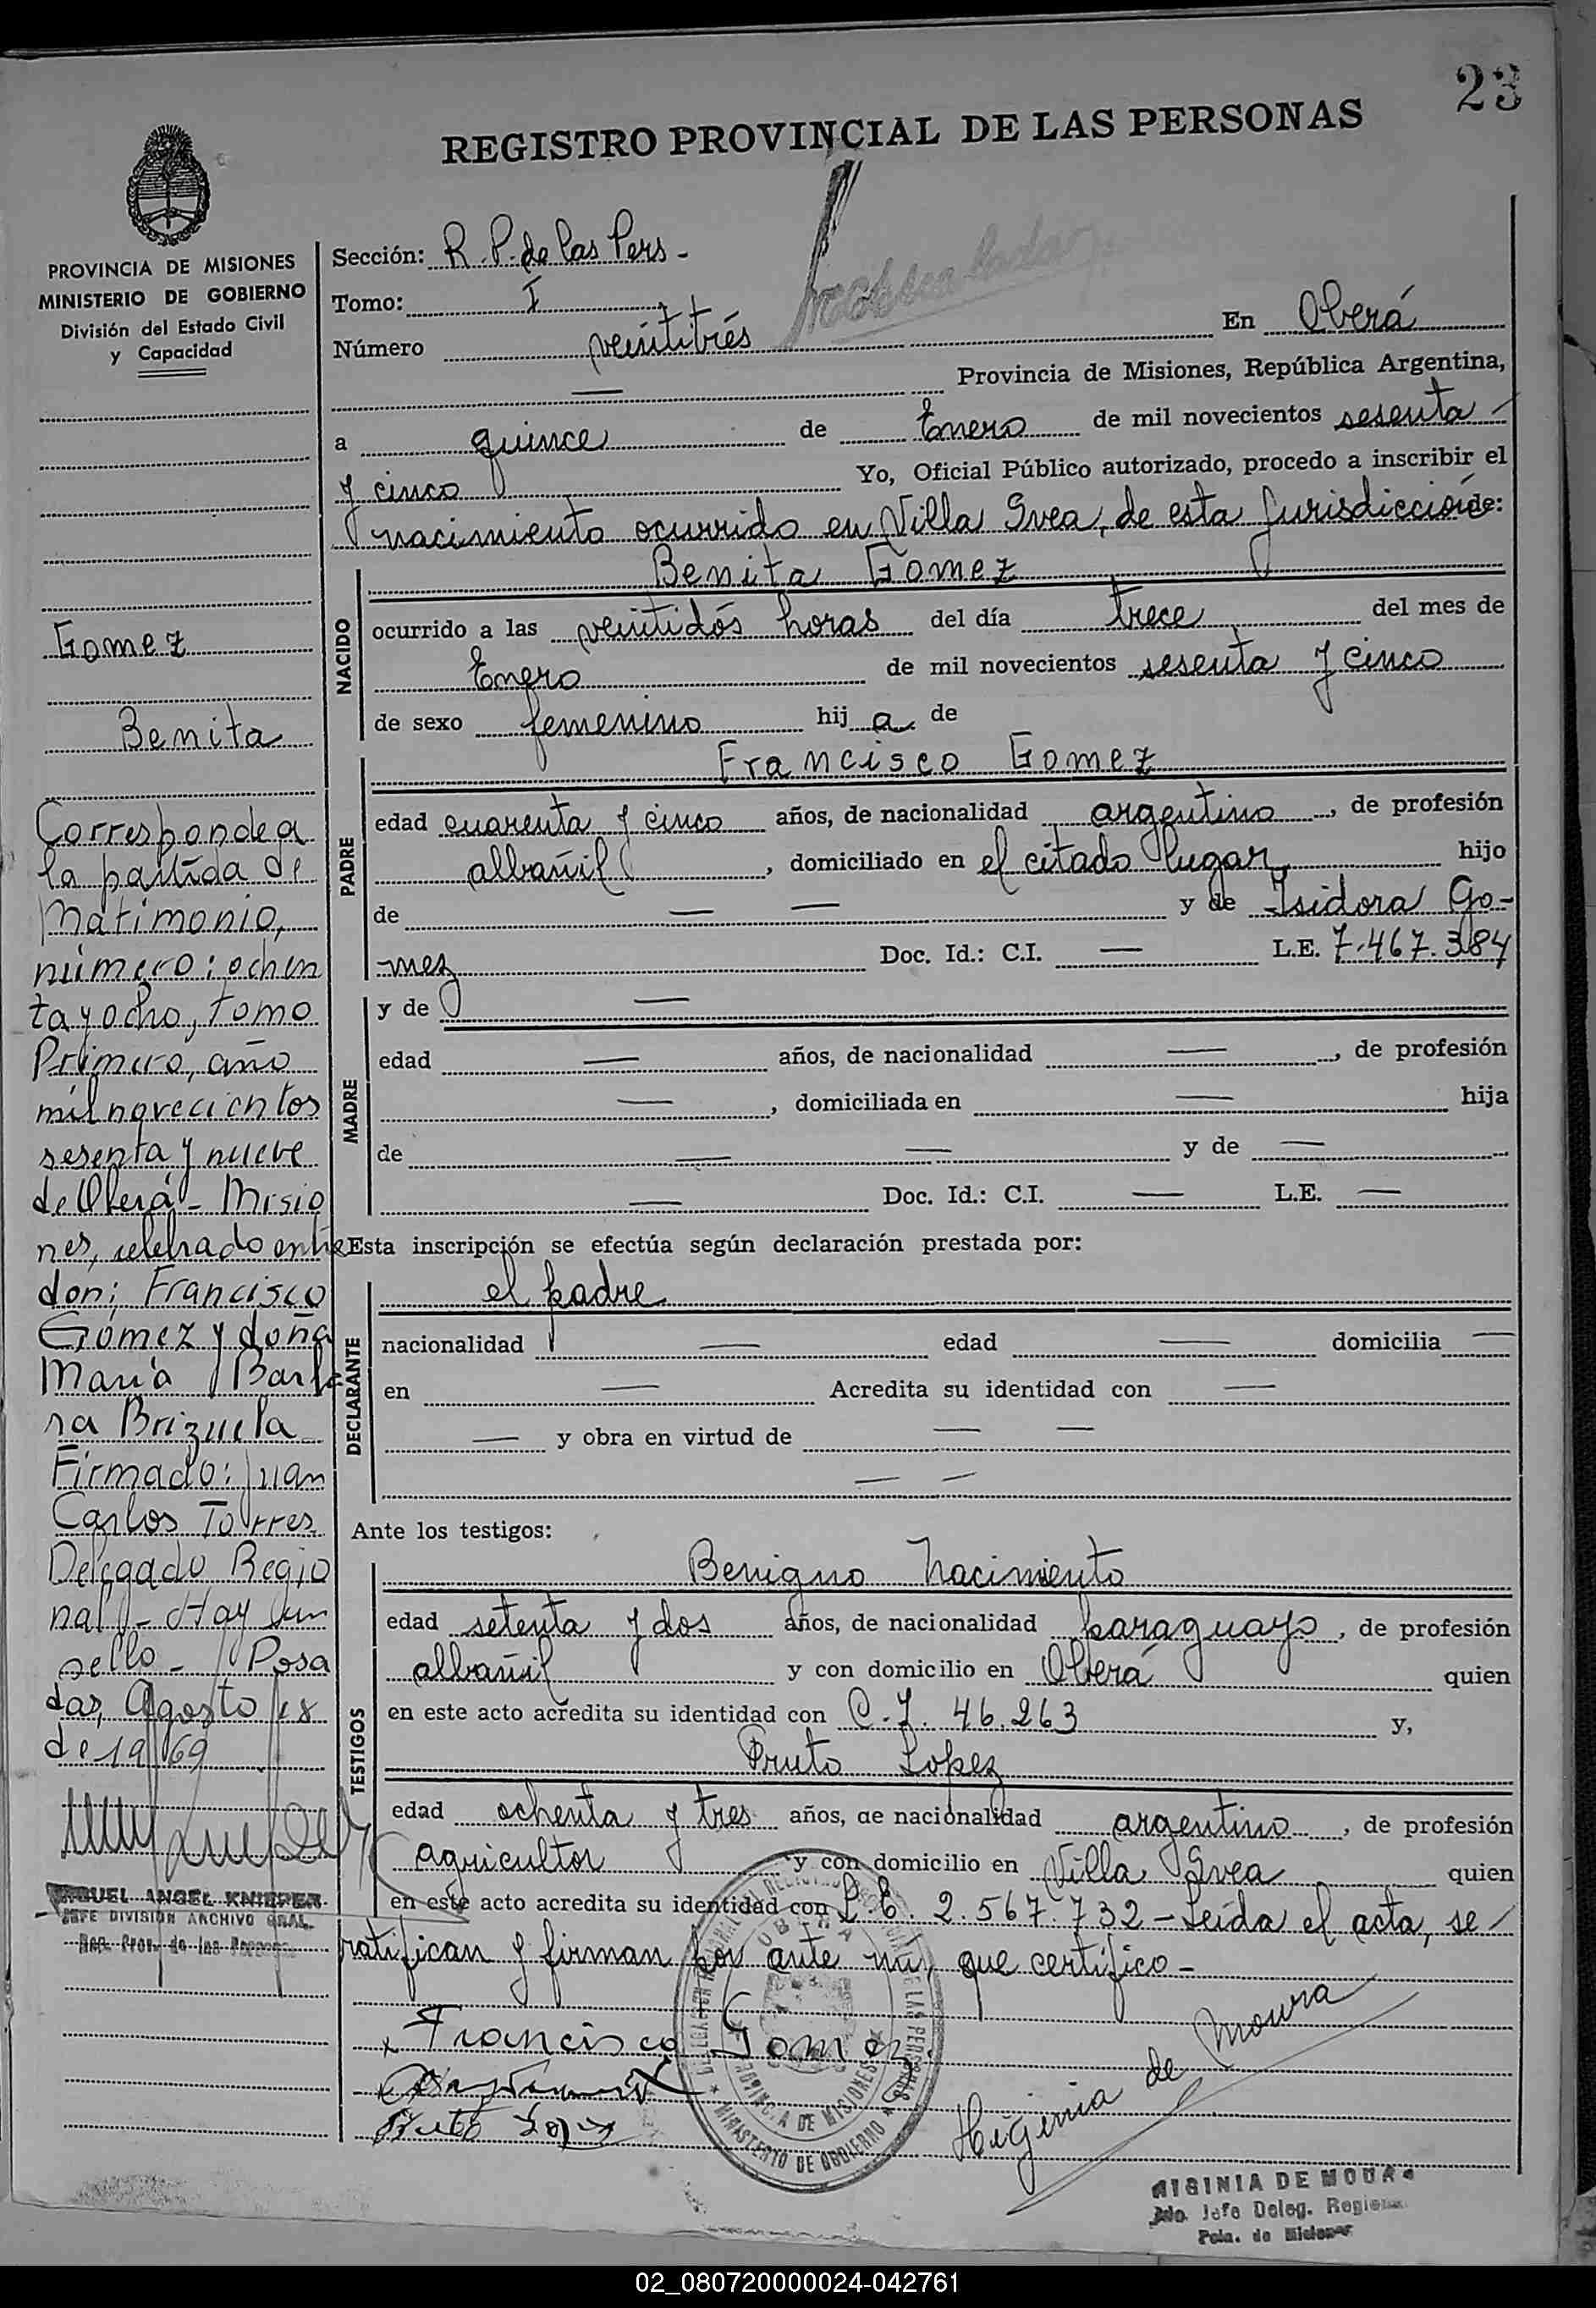 23
REGISTRO PROVINCIAL DE LAS PERSONAS
PROVINCIA DE MISIONES
MINISTERIO DE GOBIERNO
División del Estado Civil
y Capacidad
Gomez
Benita
Corresponde a
la partida de
Matimonio,
número: ochen
ta y ocho, tomo
Primero, año
mil novecientos
sesenta y nueve
de Oberá - Misio
nes, celebrado entre
don: Francisco
Gómez y doña
María Barba
ra Brizuela
Firmado: Juan
Carlos Torres
Delegado Regio
nal - Hay un
sello - Posa
das, Agosto 18
de 1969
MIGUEL ANGEL KNIEPER
JEFE DIVISION ARCHIVO GRAL.
Reg. Prov. de las Personas
Sección: R. P. de las Pers -
Tomo: I
Número veintitrés En Oberá
— Provincia de Misiones, República Argentina,
a quince de Enero de mil novecientos sesenta -
y cinco Yo, Oficial Público autorizado, procedo a inscribir el
nacimiento ocurrido en Villa Svea, de esta Jurisdicción de:
NACIDO
Benita Gomez
ocurrido a las veintidós horas del día trece del mes de
Enero de mil novecientos sesenta y cinco
de sexo femenino hij a de
PADRE
Francisco Gomez
edad cuarenta y cinco años, de nacionalidad argentino, de profesión
albañil, domiciliado en el citado lugar, hijo
de — — y de Isidora Go-
mez Doc. Id.: C.I. — L.E. 7.467.384
MADRE
y de —
edad — años, de nacionalidad —, de profesión
—, domiciliada en — hija
de — — y de —
— Doc. Id.: C.I. — L.E. —
Esta inscripción se efectúa según declaración prestada por:
DECLARANTE
el padre
nacionalidad — edad — domicilia —
en — Acredita su identidad con —
— y obra en virtud de — —
— —
Ante los testigos:
TESTIGOS
Benigno Nacimiento
edad setenta y dos años, de nacionalidad paraguayo, de profesión
albañil y con domicilio en Oberá quien
en este acto acredita su identidad con C.I. 46.263 y,
Pruto Lopez
edad ochenta y tres años, de nacionalidad argentino, de profesión
agricultor y con domicilio en Villa Svea quien
en este acto acredita su identidad con L.E. 2.567.732 - Leída el acta, se -
ratifican y firman por ante mí, que certifico -
Francisco Gomez
Higinia de Moura
MINISTERIO DE GOBIERNO
PROVINCIA DE MISIONES
OBERA
HIGINIA DE MOURA
2do. Jefe Deleg. Regional
Pcia. de Misiones
02_080720000024-042761